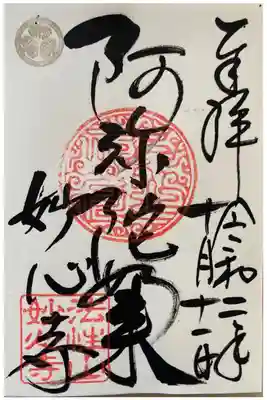 奉拝
令和二年
十月十一日
阿弥陀如来
妙心寺
法性山
妙心寺